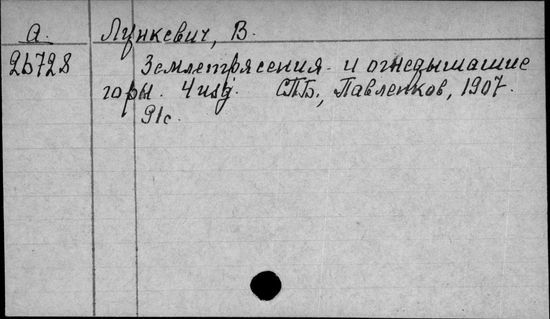 А. Лункевич, В.
26728 Землетрясения и огнедышащие
горы. 4 изд. СПБ, Павленков, 1907.
91с.